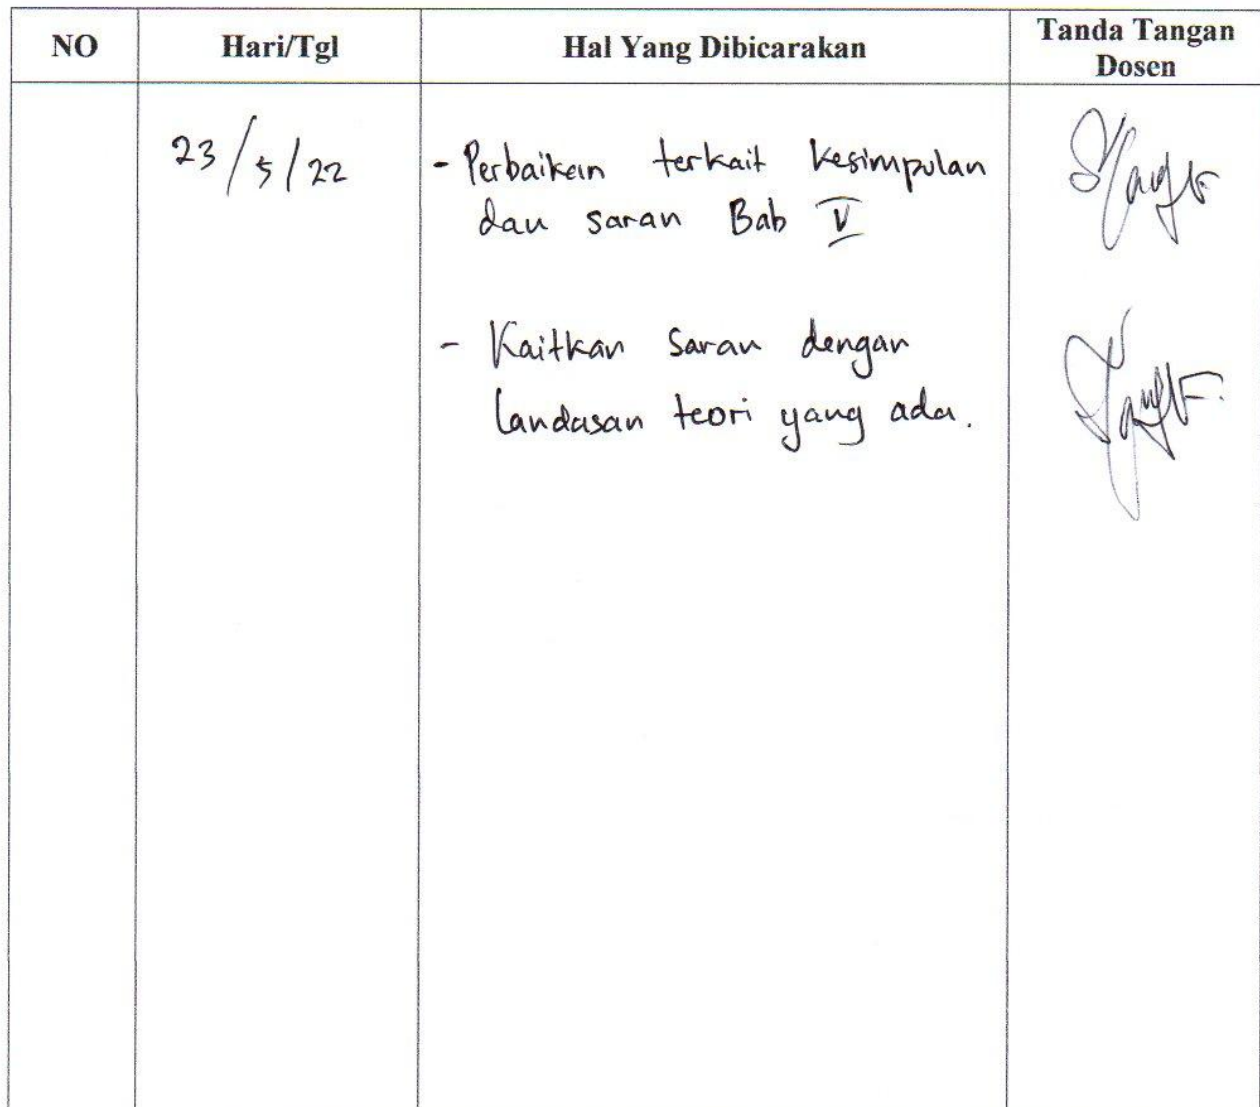 NO Hari/Tgl Hal Yang Dibicarakan Tanda Tangan
Dosen
23/5/22 - Perbaikan terkait Kesimpulan
dan saran Bab V
- Kaitkan Saran dengan
landasan teori yang ada.